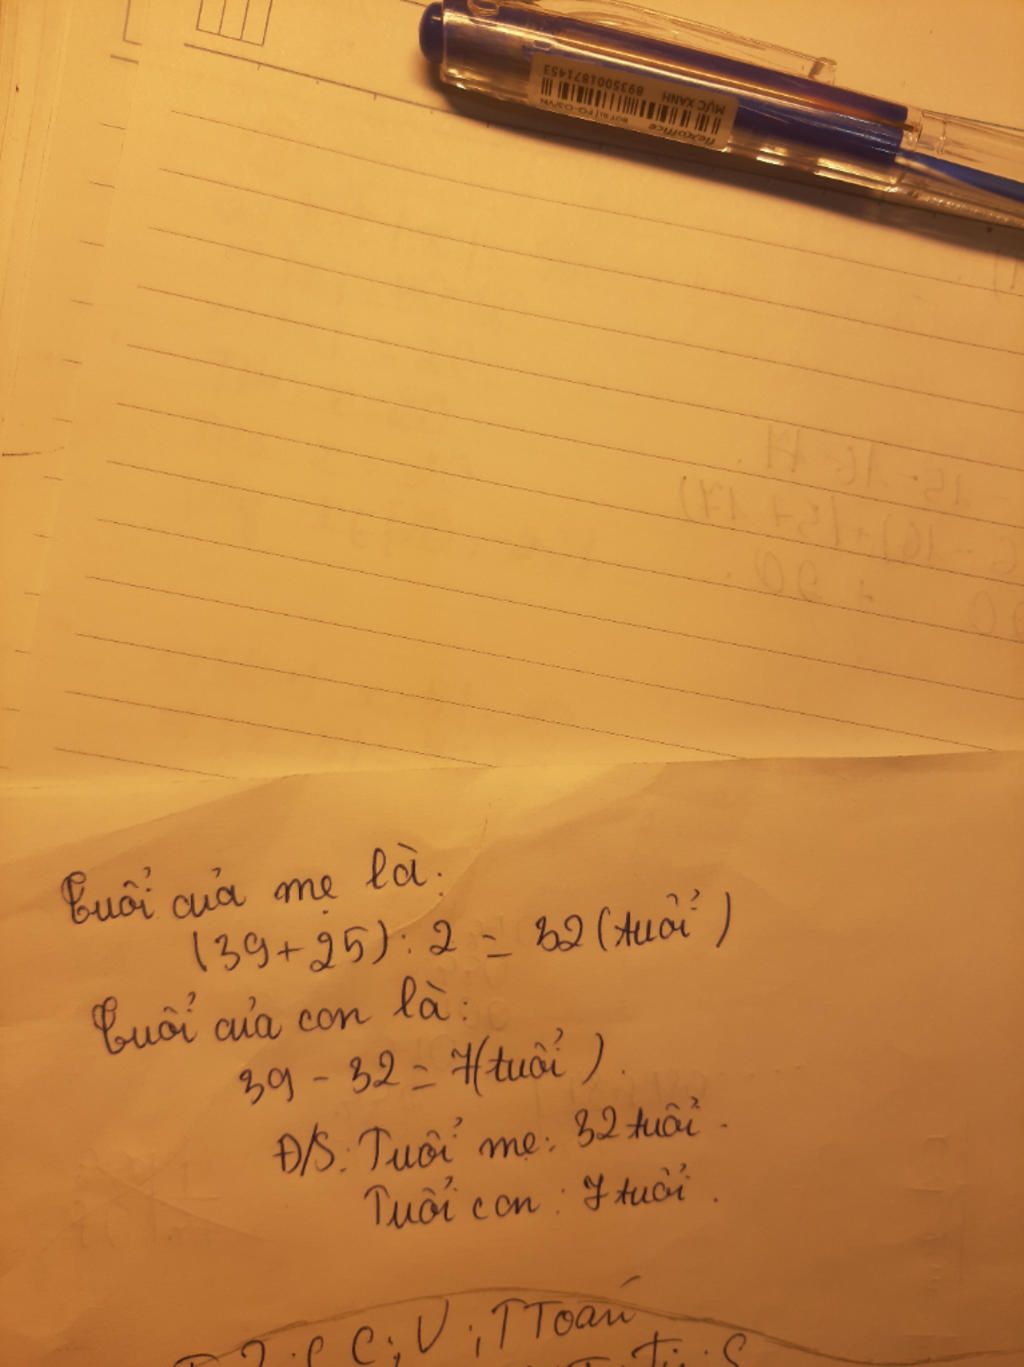 flexoffice
BÚT BI | FO-03/VN
8935001871453
MỰC XANH
Tuổi của mẹ là:
(39+25): 2 = 32 (tuổi)
Tuổi của con là:
39 - 32 = 7 (tuổi).
Đ/S: Tuổi mẹ: 32 tuổi.
Tuổi con: 7 tuổi.
C; V; TToán